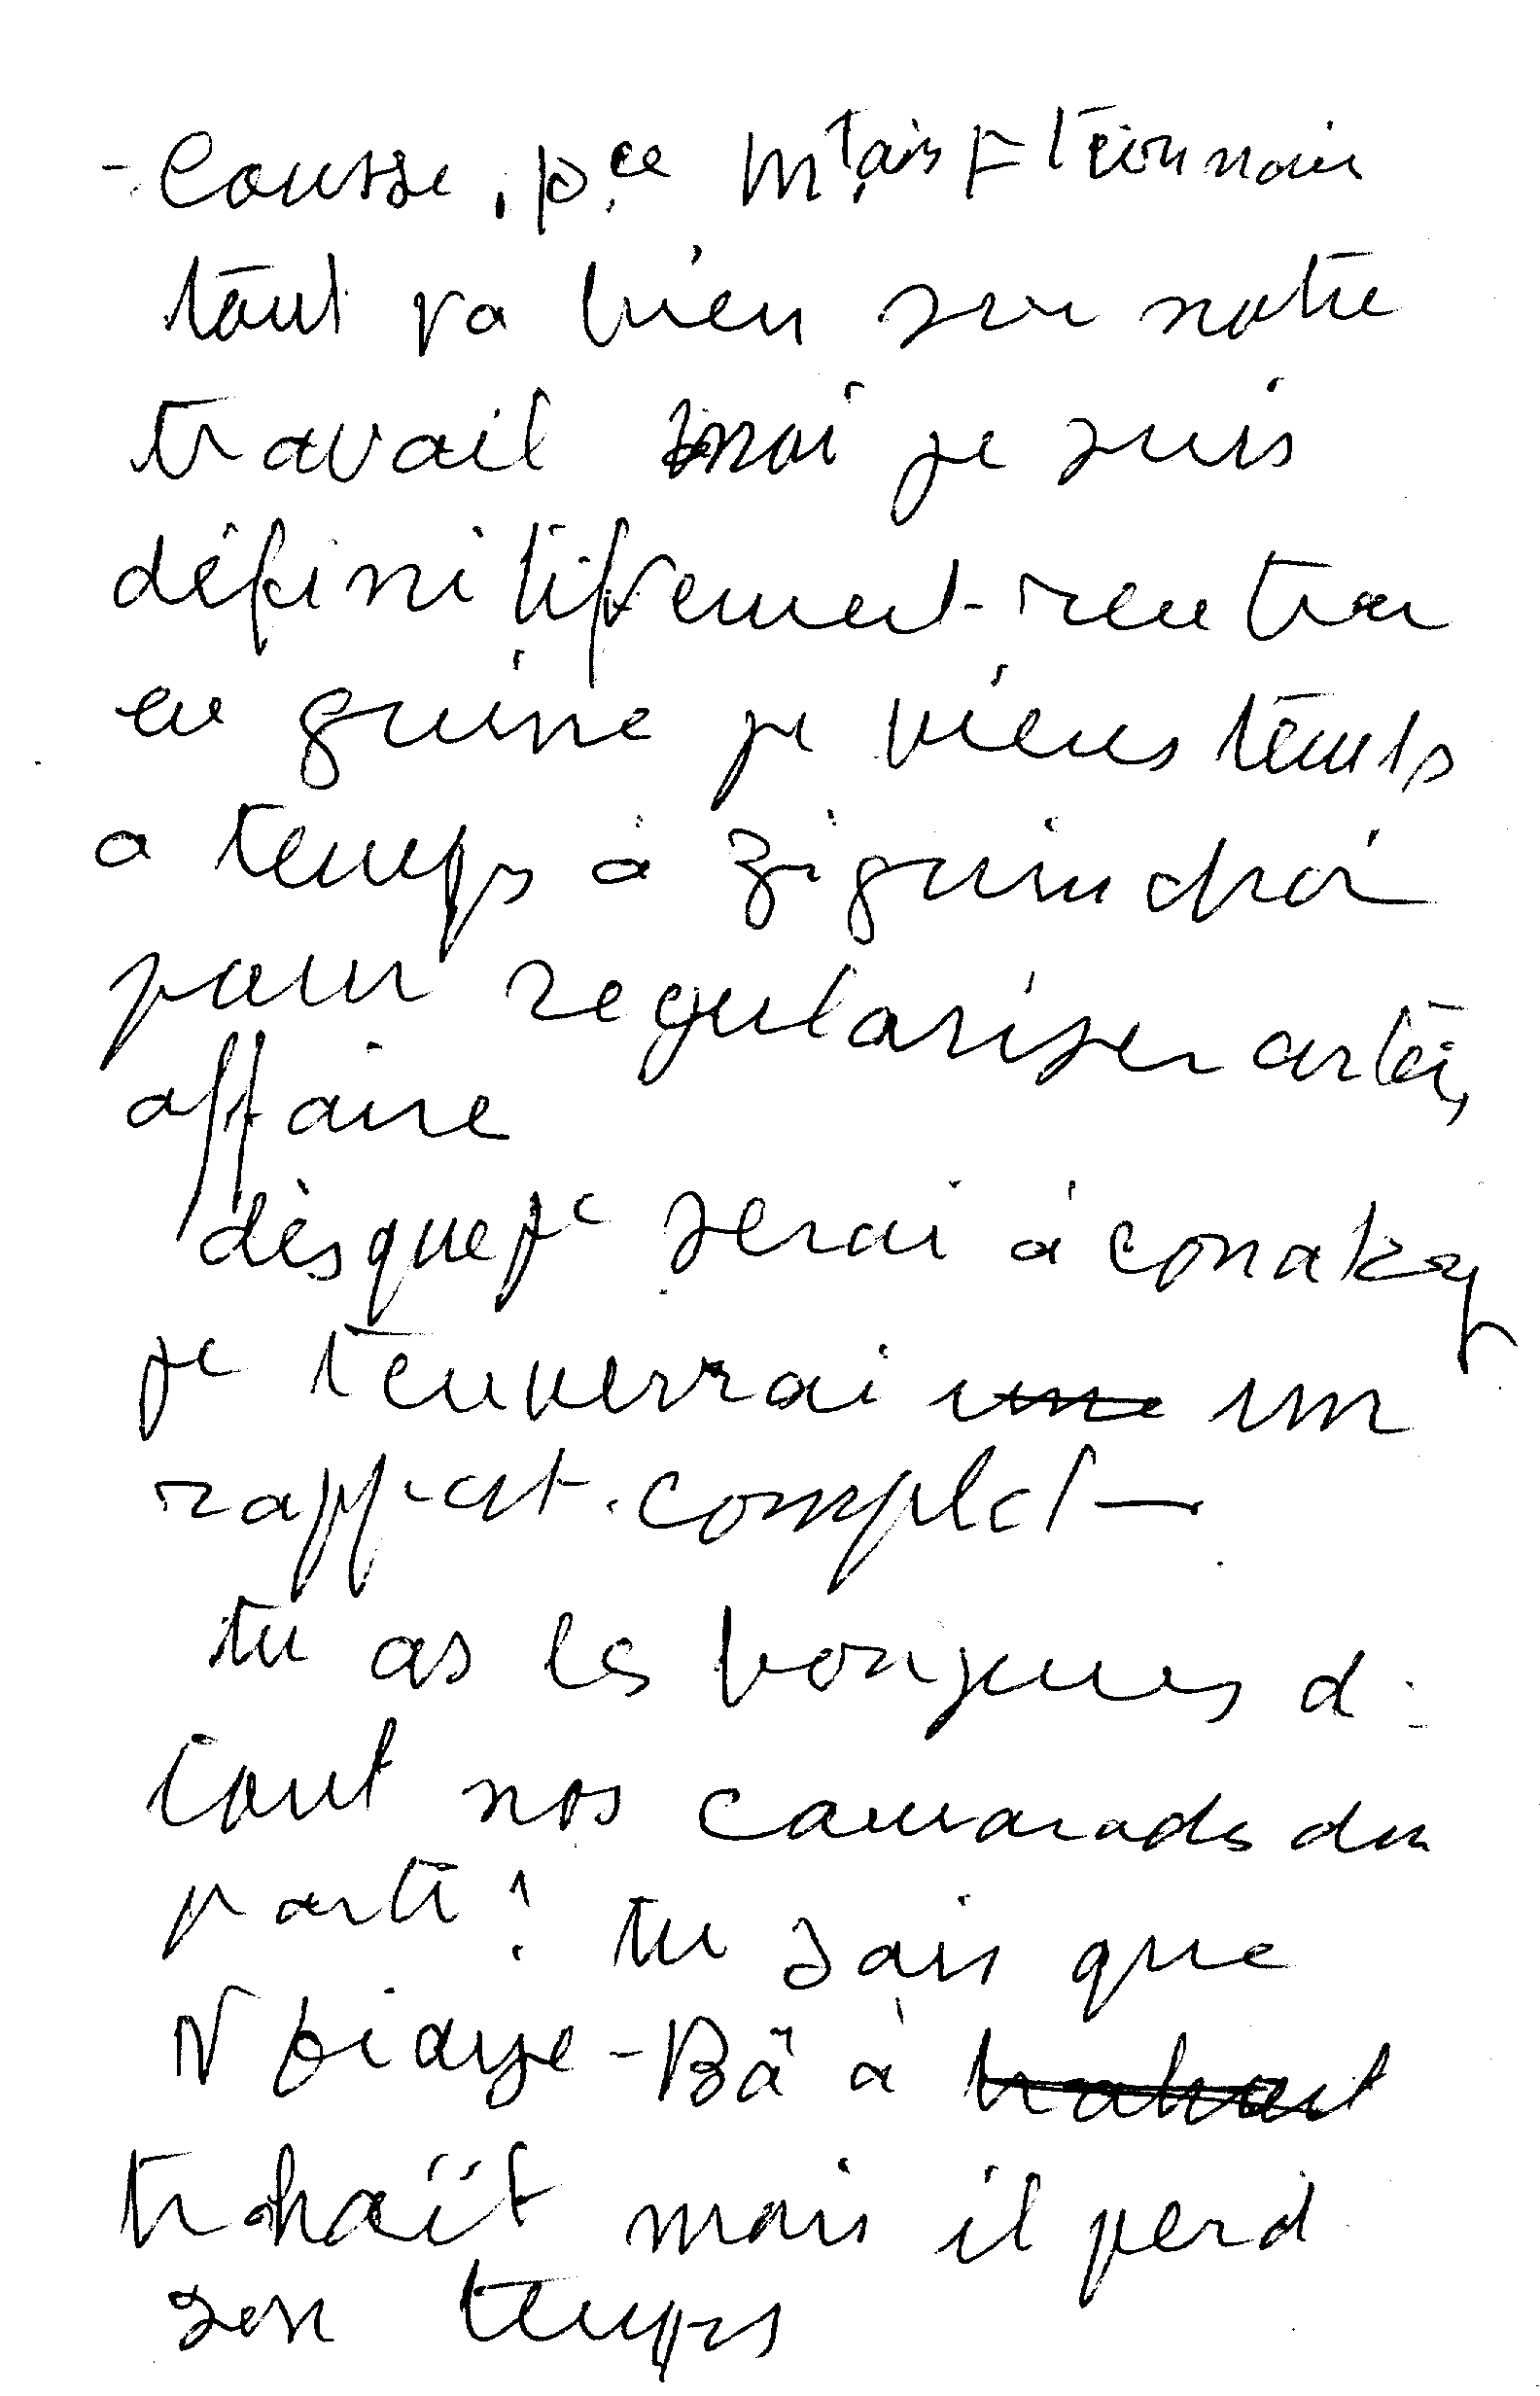 tout va bien sur notre
travail moi je suis
définitifvement rentrer
en guine je viens temps
a temps à ziguinchor
pour regulariser
affaire
dès que je serai à conakry
je t'enverrai une un
rapport complet —
tu as les bonjoures de
tout nos camarads du
parti! tu sais que
N'diaye-Bâ à
trahaït mais il perd
son temps